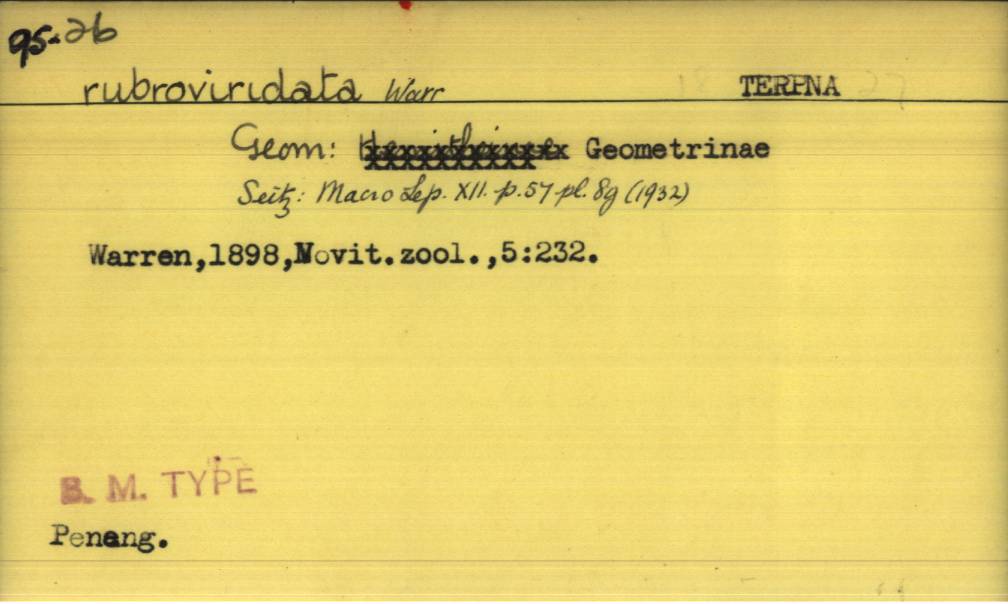 95-26
rubroviridata Warr TERPNA
Geom: Geometrinae
Seitz: Macro Lep. XII. p.57 pl. 8g (1932)
Warren,1898,Novit.zool.,5:232.
B. M. TYPE
Penang.